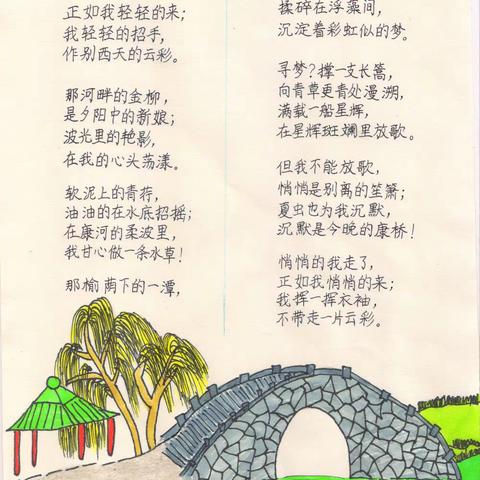 正如我轻轻的来；
我轻轻的招手，
作别西天的云彩。
那河畔的金柳，
是夕阳中的新娘；
波光里的艳影，
在我的心头荡漾。
软泥上的青荇，
油油的在水底招摇；
在康河的柔波里，
我甘心做一条水草！
那榆荫下的一潭，
揉碎在浮藻间，
沉淀着彩虹似的梦。
寻梦？撑一支长篙，
向青草更青处漫溯，
满载一船星辉，
在星辉斑斓里放歌。
但我不能放歌，
悄悄是别离的笙箫；
夏虫也为我沉默，
沉默是今晚的康桥！
悄悄的我走了，
正如我悄悄的来；
我挥一挥衣袖，
不带走一片云彩。